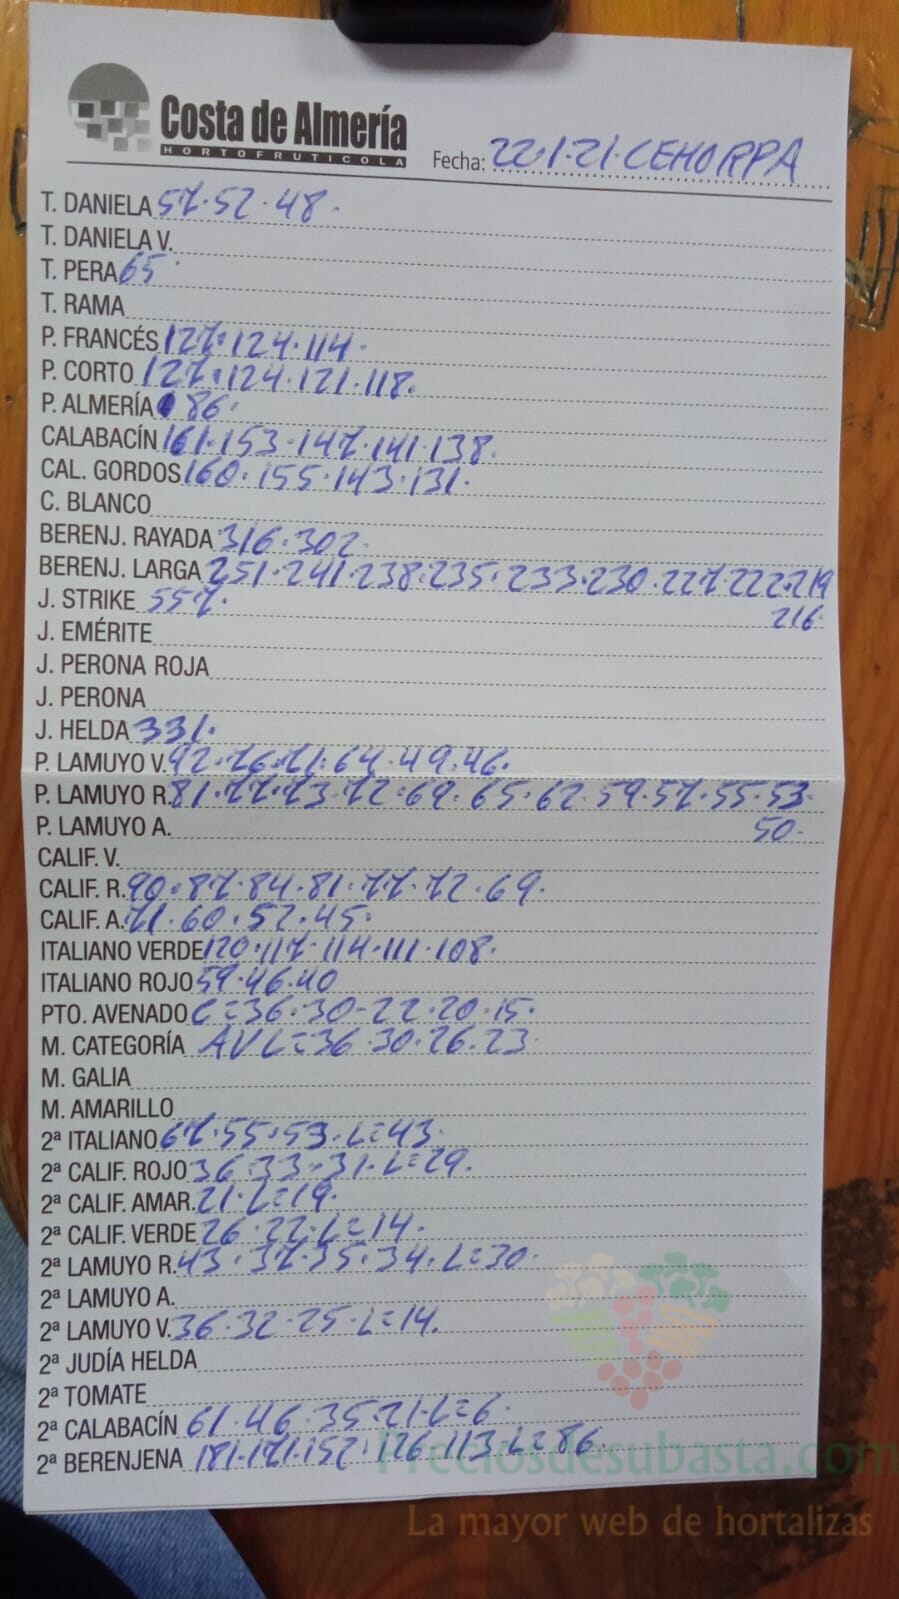 Costa de Almería
HORTOFRUTICOLA
Fecha: 22·1·21·CEHORPA
T. DANIELA 57·52·48·
T. DANIELA V.
T. PERA 65·
T. RAMA
P. FRANCÉS 127·124·114·
P. CORTO 127·124·121·118·
P. ALMERÍA 86·
CALABACÍN 161·153·147·141·138·
CAL. GORDOS 160·155·143·131·
C. BLANCO
BERENJ. RAYADA 316·302·
BERENJ. LARGA 251·241·238·235·233·230·227·222·219
216·
J. STRIKE 557·
J. EMÉRITE
J. PERONA ROJA
J. PERONA
J. HELDA 331·
P. LAMUYO V. 92·76·71·64·49·46·
P. LAMUYO R. 81·77·73·72·69·65·62·59·57·55·53·
50·
P. LAMUYO A.
CALIF. V.
CALIF. R. 90·87·84·81·77·72·69·
CALIF. A. 71·60·52·45·
ITALIANO VERDE 120·117·114·111·108·
ITALIANO ROJO 59·46·40
PTO. AVENADO C=36·30-22·20·15·
M. CATEGORÍA AVL=36·30·26·23
M. GALIA
M. AMARILLO
2ª ITALIANO 67·55·53·L=43·
2ª CALIF. ROJO 36·33·31·L=29·
2ª CALIF. AMAR. 21·L=19·
2ª CALIF. VERDE 26·22·L=14·
2ª LAMUYO R. 43·37·35·34·L=30·
2ª LAMUYO A.
2ª LAMUYO V. 36·32·25·L=14·
2ª JUDÍA HELDA
2ª TOMATE
2ª CALABACÍN 61·46·35·21·L=6·
2ª BERENJENA 181·171·152·126·113·L=86·
Preciosdesubasta.com
La mayor web de hortalizas